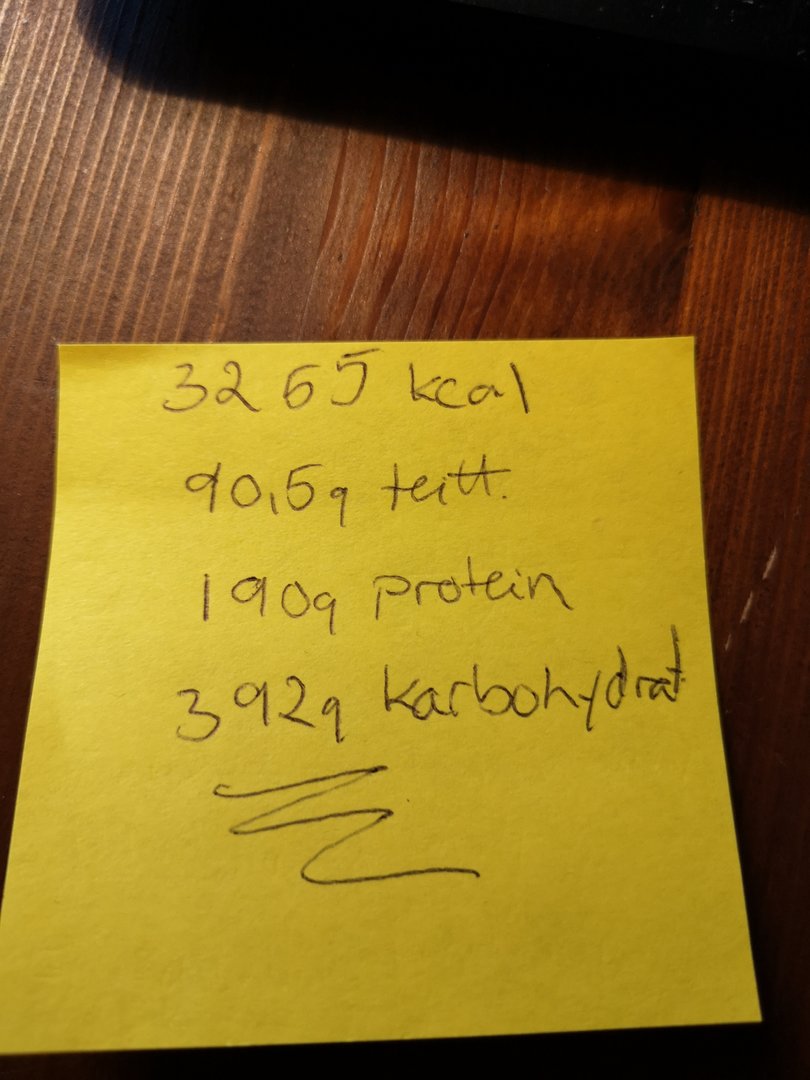 3265 kcal
90,5g feitt.
190g protein
392g karbohydrat